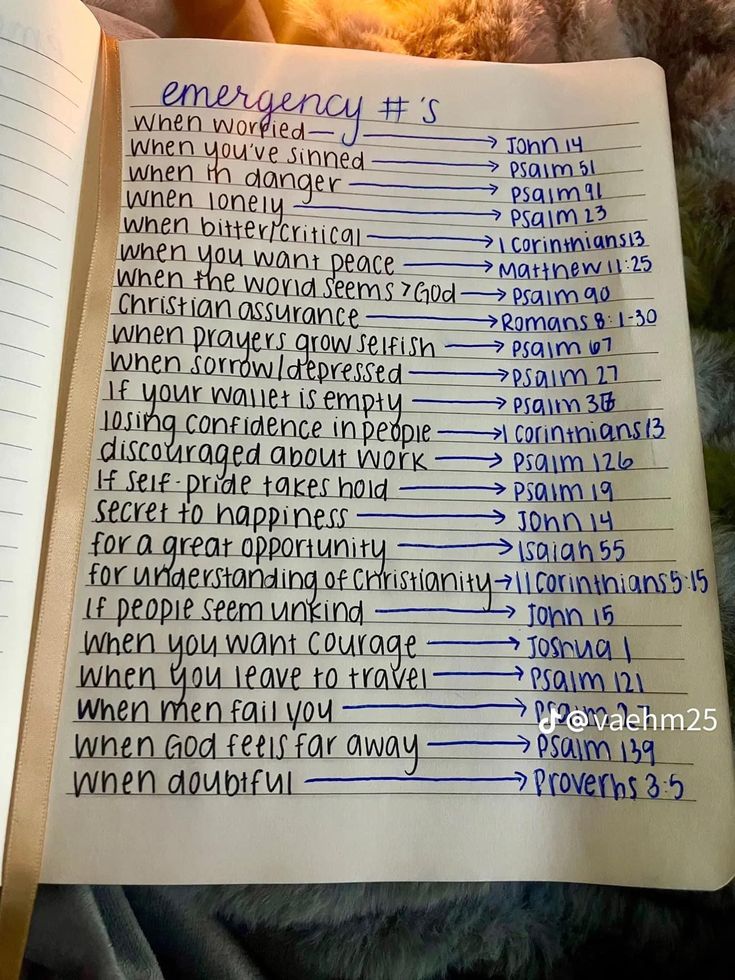 emergency #'s
when worried → John 14
when you've sinned → Psalm 51
when in danger → Psalm 91
when lonely → Psalm 23
when bitter/critical → 1 Corinthians 13
when you want peace → Matthew 11:25
when the world seems > God → Psalm 90
Christian assurance → Romans 8: 1-30
when prayers grow selfish → Psalm 67
when sorrow/depressed → Psalm 27
If your wallet is empty → Psalm
losing confidence in people → 1 Corinthians 13
discouraged about work → Psalm 126
If self-pride takes hold → Psalm 19
secret to happiness → John 14
for a great opportunity → Isaiah 55
for understanding of Christianity → 11 Corinthians 5:15
If people seem unkind → John 15
when you want courage → Joshua 1
when you leave to travel → Psalm 121
when men fail you → Psalm
@vaehm25
when God feels far away → Psalm 139
when doubtful → Proverbs 3:5